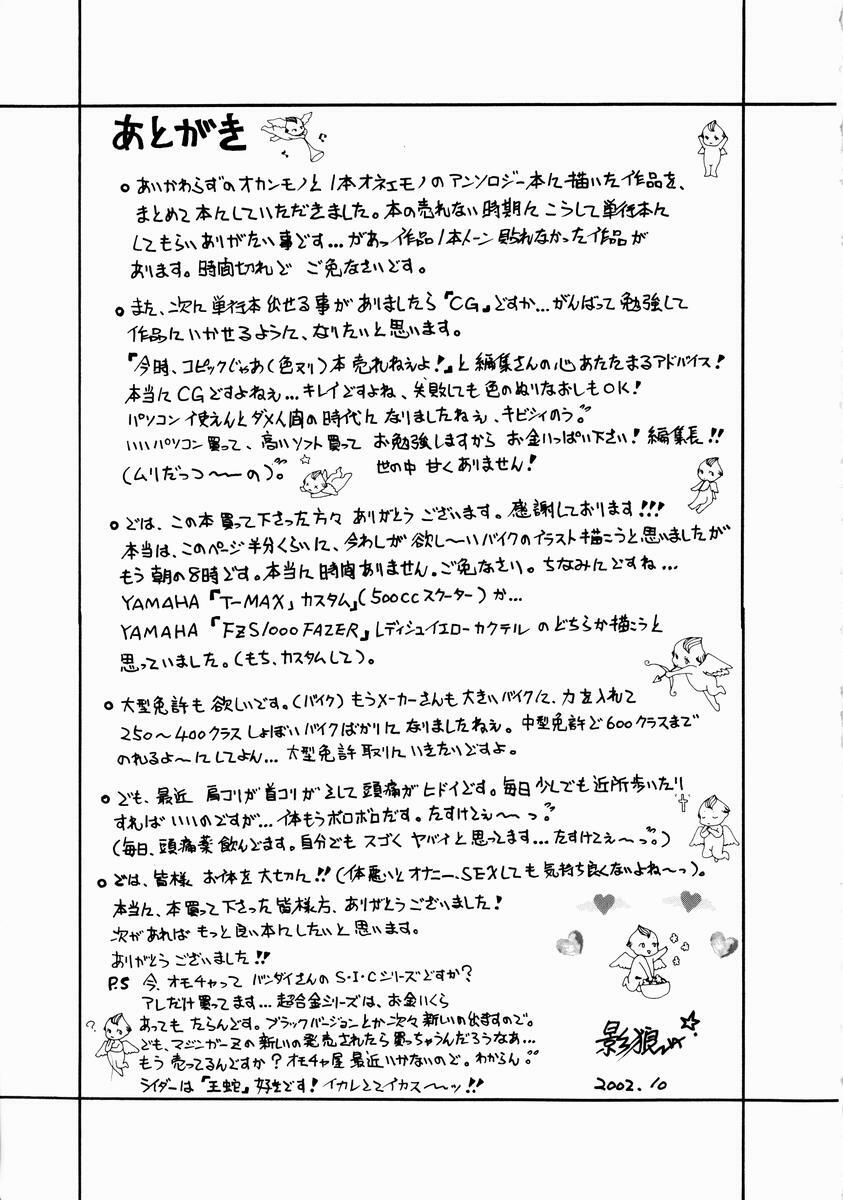 あとがき
。あいかわらずのオカンモノと1本オネエモノのアンソロジー本に描いた作品を、
まとめて本にしていただきました。本の売れない時期にこうして単行本に
してもらいありがたい事です…があっ作品1本トーン貼れなかった作品が
あります。時間切れで ご免なさいです。
。また、次に単行本出せる事がありましたら『CG』ですか…がんばって勉強して
作品にいかせるように、なりたいと思います。
『今時、コピックじゃあ(色ヌリ)本売れねぇよ!』と編集さんの心あたたまるアドバイス!
本当にCGですよねぇ…キレイですよね、失敗しても色のぬりなおしもOK!
パソコン使えんとダメ人間の時代になりましたねぇ、キビシィのう。
いいパソコン買って、高いソフト買って お勉強しますから お金いっぱい下さい!編集長!!
(ムリだっつ〜〜の)。 世の中 甘くありません!
。では、この本買って下さった方々 ありがとうございます。感謝しております!!!
本当は、このページ半分くらいに、今わしが欲し〜いバイクのイラスト描こうと思いましたが
もう朝の8時です。本当に時間ありません。ご免なさい。ちなみにですね…
YAMAHA『T-MAX』カスタム』(500ccスクーター)か…
YAMAHA『FZS1000FAZER』レディシュイエローカクテル のどちらか描こうと
思っていました。(もち、カスタムして)。
。大型免許も欲しいです。(バイク)もうメーカーさんも大きいバイクに、力を入れて
250〜400クラスしょぼいバイクばかりになりましたねぇ。中型免許で600クラスまで
のれるよ〜にしてよん…大型免許取りにいきたいですよ。
。でも、最近 肩コリが首コリがそして頭痛がヒドイです。毎日少しでも近所歩いたり
すればいいのですが…体もうボロボロだす。たすけてぇ〜〜っ。
(毎日、頭痛薬飲んでます。自分でもスゴくヤバイと思ってます…たすけてぇ〜っ。)
。では、皆様 お体を大切に!!(体悪いとオナニー、SEXしても気持ち良くないよね〜っ)。
本当に、本買って下さった皆様方、ありがとうございました!
次があれば もっと良い本にしたいと思います。
ありがとうございました!!
P.S 今、オモチャって バンダイさんのS・I・Cシリーズですか?
アレだけ買ってます…超合金シリーズは、お金いくら
あってもたらんです。ブラックバージョンとか次々新しいの出ますので。
でも、マジンガーZの新しいの発売されたら買っちゃうんだろうなあ…
もう売ってるんですか?オモチャ屋最近いかないので。わからん。
ライダーは『王蛇』好きです!イカレててイカス〜〜ッ!!
?
影狼
2002.10